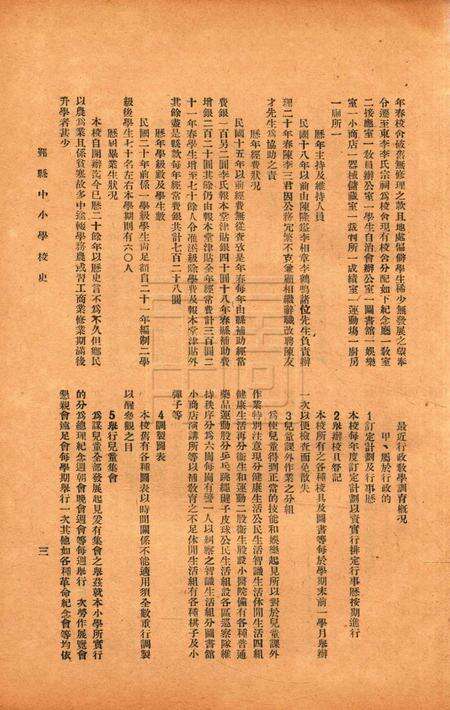 年春校舍破舊無修理之款且地處偏僻學生稀少無發展之望奉
令遷至東李李氏宗祠為校舍現有校舍分配如下紀念廳一教室
二接應室一教員辦公室一學生自治會辦公室一圖書館一娛樂
室一小商店一器械儲藏室一裁判所一成績室一運動場一廚房
一廁所一
歷年主持及維持人員
民國十八年以前由陳隆鎰李相章李鶴鳴諸位先生負責辦
理二十年春陳李三君因公務冗繁不克兼顧相繼辭職改聘陳友
才先生為協助之責
歷年經費狀況
民國十五年以前經費無從查攷是年春每年由縣補助經
費銀一百另二圓李氏報本堂津貼銀四十圓十八年春縣補助費
增銀二百二十圓其餘仍由報本堂津貼全年經常費計三百圓二
十一年春學生增至七十餘人令准添級除學費及報本堂津貼外
其餘盡是縣款每年經常費銀共計七百二十八圓
歷年學級數及學生數
民國二十年前係一學級學生尚足額自二十一年編制二學
級後學生七十名左右本學期則有六〇人
歷屆畢業生狀況
本校自開辦迄今已歷二十餘年以歷史言不為不久但鄉民
以農為業且係貧寒故多中途輟學務農或習工商業修業期滿後
升學者甚少
鄞縣中小學校史
最近行政教學訓育概況
甲、屬於行政的
1訂定計劃及行事歷
本校每年度訂定計劃以資實行排定行事歷按期進行
2舉辦校具登記
本校所有之各種校具及圖書等每於學期末前一學月舉辦
一次以便檢查而免散失
3兒童課外作業之分組
為使兒童得到正當的技能和娛樂起見所以對於兒童課外
作業特別注意現分健康生活公民生活智識生活休閒生活四組
健康生活再分衛生和運動二股衛生股設小醫院備有各種普通
藥品運動股分乒乓跳繩毽子皮球公民生活組設各區巡察隊維
持秩序分為六崗每崗有警一人以糾察之智識生活組分圖書館
小商店演講所等以補教育之不足休閒生活組有各種棋子及小
彈子等
4調製圖表
本校舊有各種圖表以時間關係不能適用須全數重行調製
以醒參觀之目
5舉行兒童集會
為謀兒童全部發展起見妥有集會之舉茲就本小學所實行
的分為總理紀念週朝會晚會週會等每週舉行一次勞作展覽會
懇親會遠足會每學期舉行一次其他如各種革命紀念會等均依
三